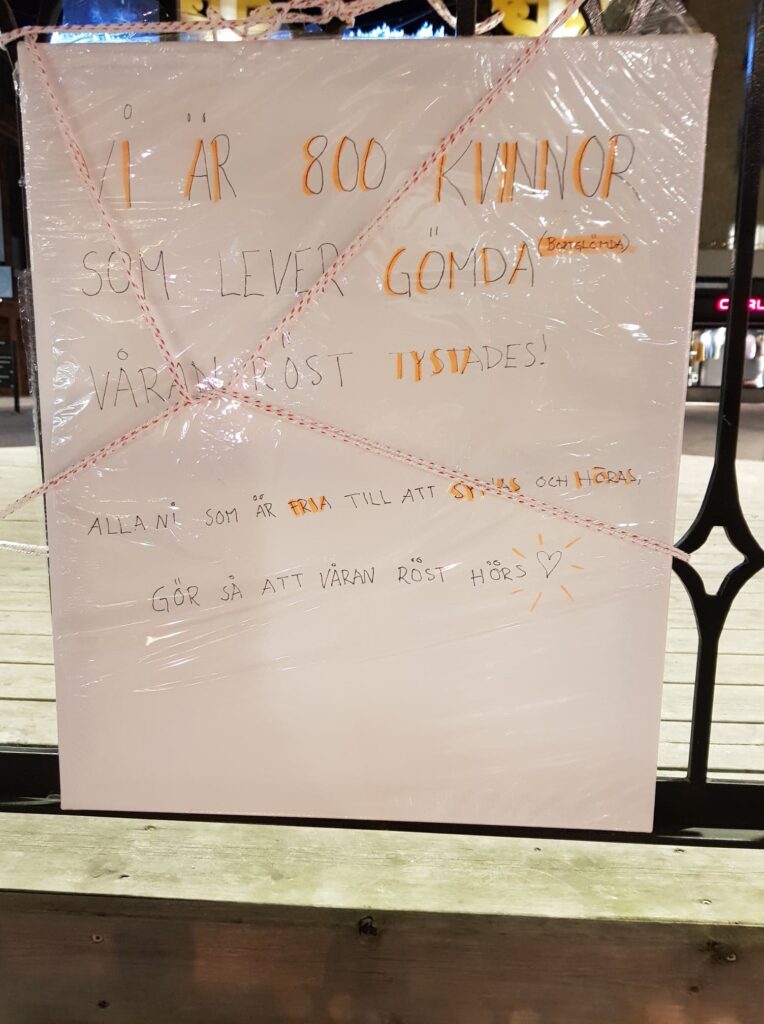 VI ÄR 800 KVINNOR
SOM LEVER GÖMDA (BORTGLÖMDA)
VÅRAN RÖST TYSTADES!
ALLA NI SOM ÄR FRIA TILL ATT SYNAS OCH HÖRAS,
GÖR SÅ ATT VÅRAN RÖST HÖRS